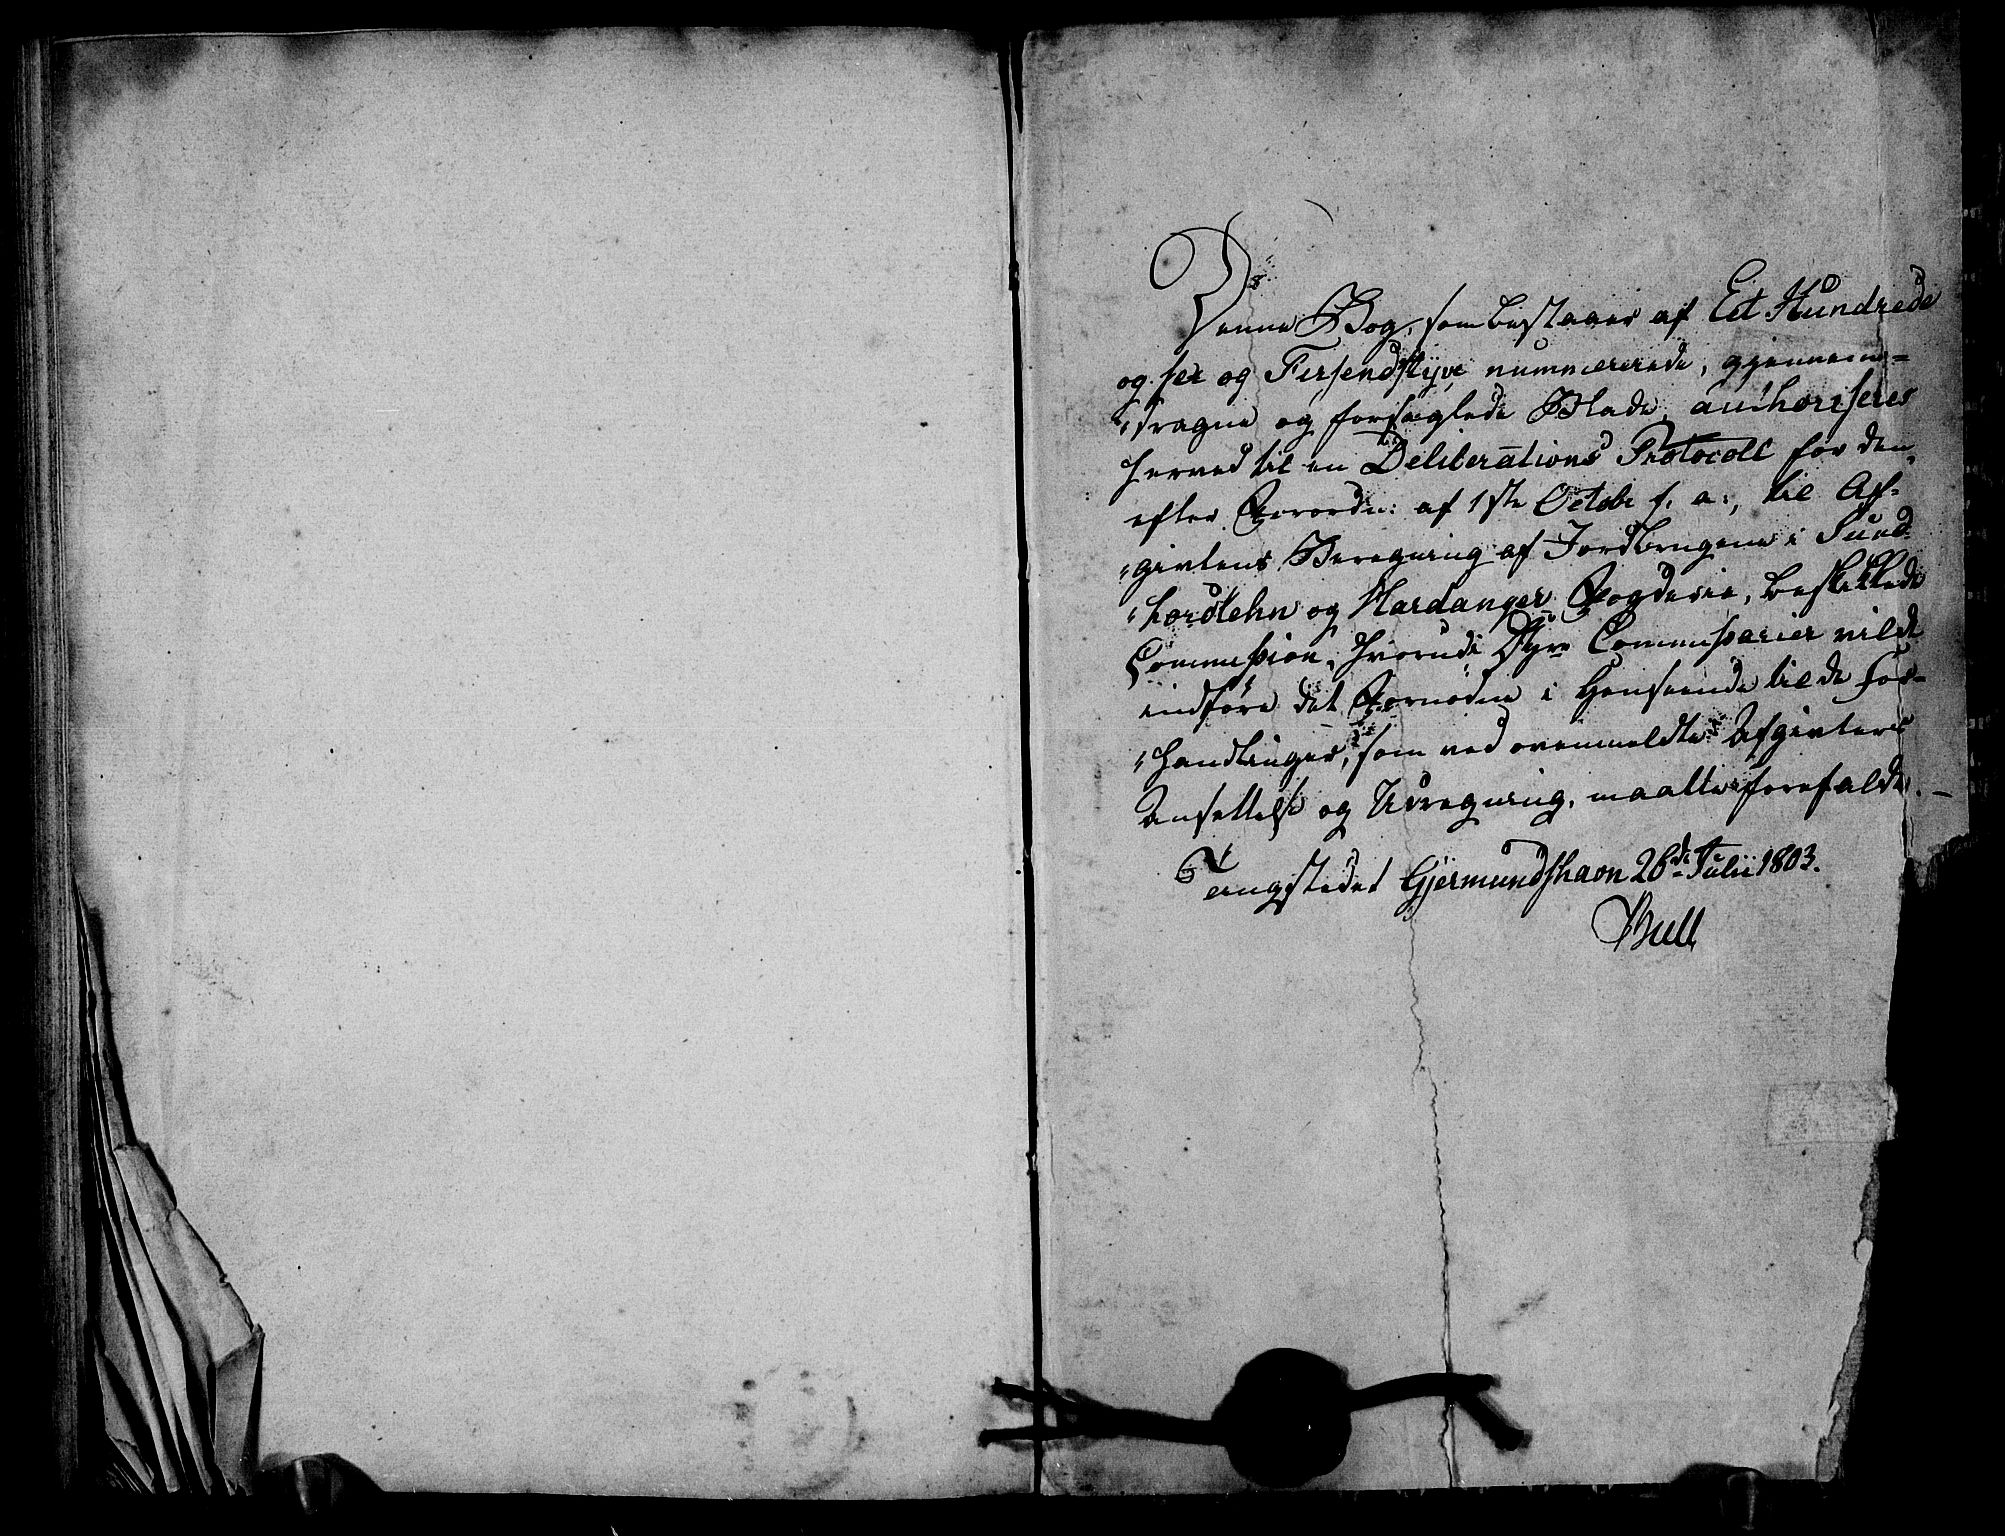 Denne Bog, som bestaaer af Eet Hundrede
og sex og Firsendstyve nummererede, gjennem-
dragne og forseglede Blade, authoriseres
herved til en Deliberations Protocoll for den,
efter Forordn: af 1ste Octobr f. a:, til Af-
givtens Beregning af Jordbrugene i Sund-
hordlehn og Hardanger Fogderie, beskikkede
Commission, hvorudi D'Hrr Commissairer vilde
indføre det Fornødne i Henseende til de For-
handlinger, som ved ovenmeldte Afgivters
Ansettelse og Udregning, maatte forefalde. —
Tingstedet Gjermundshavn 26de Julii 1803.
Bull